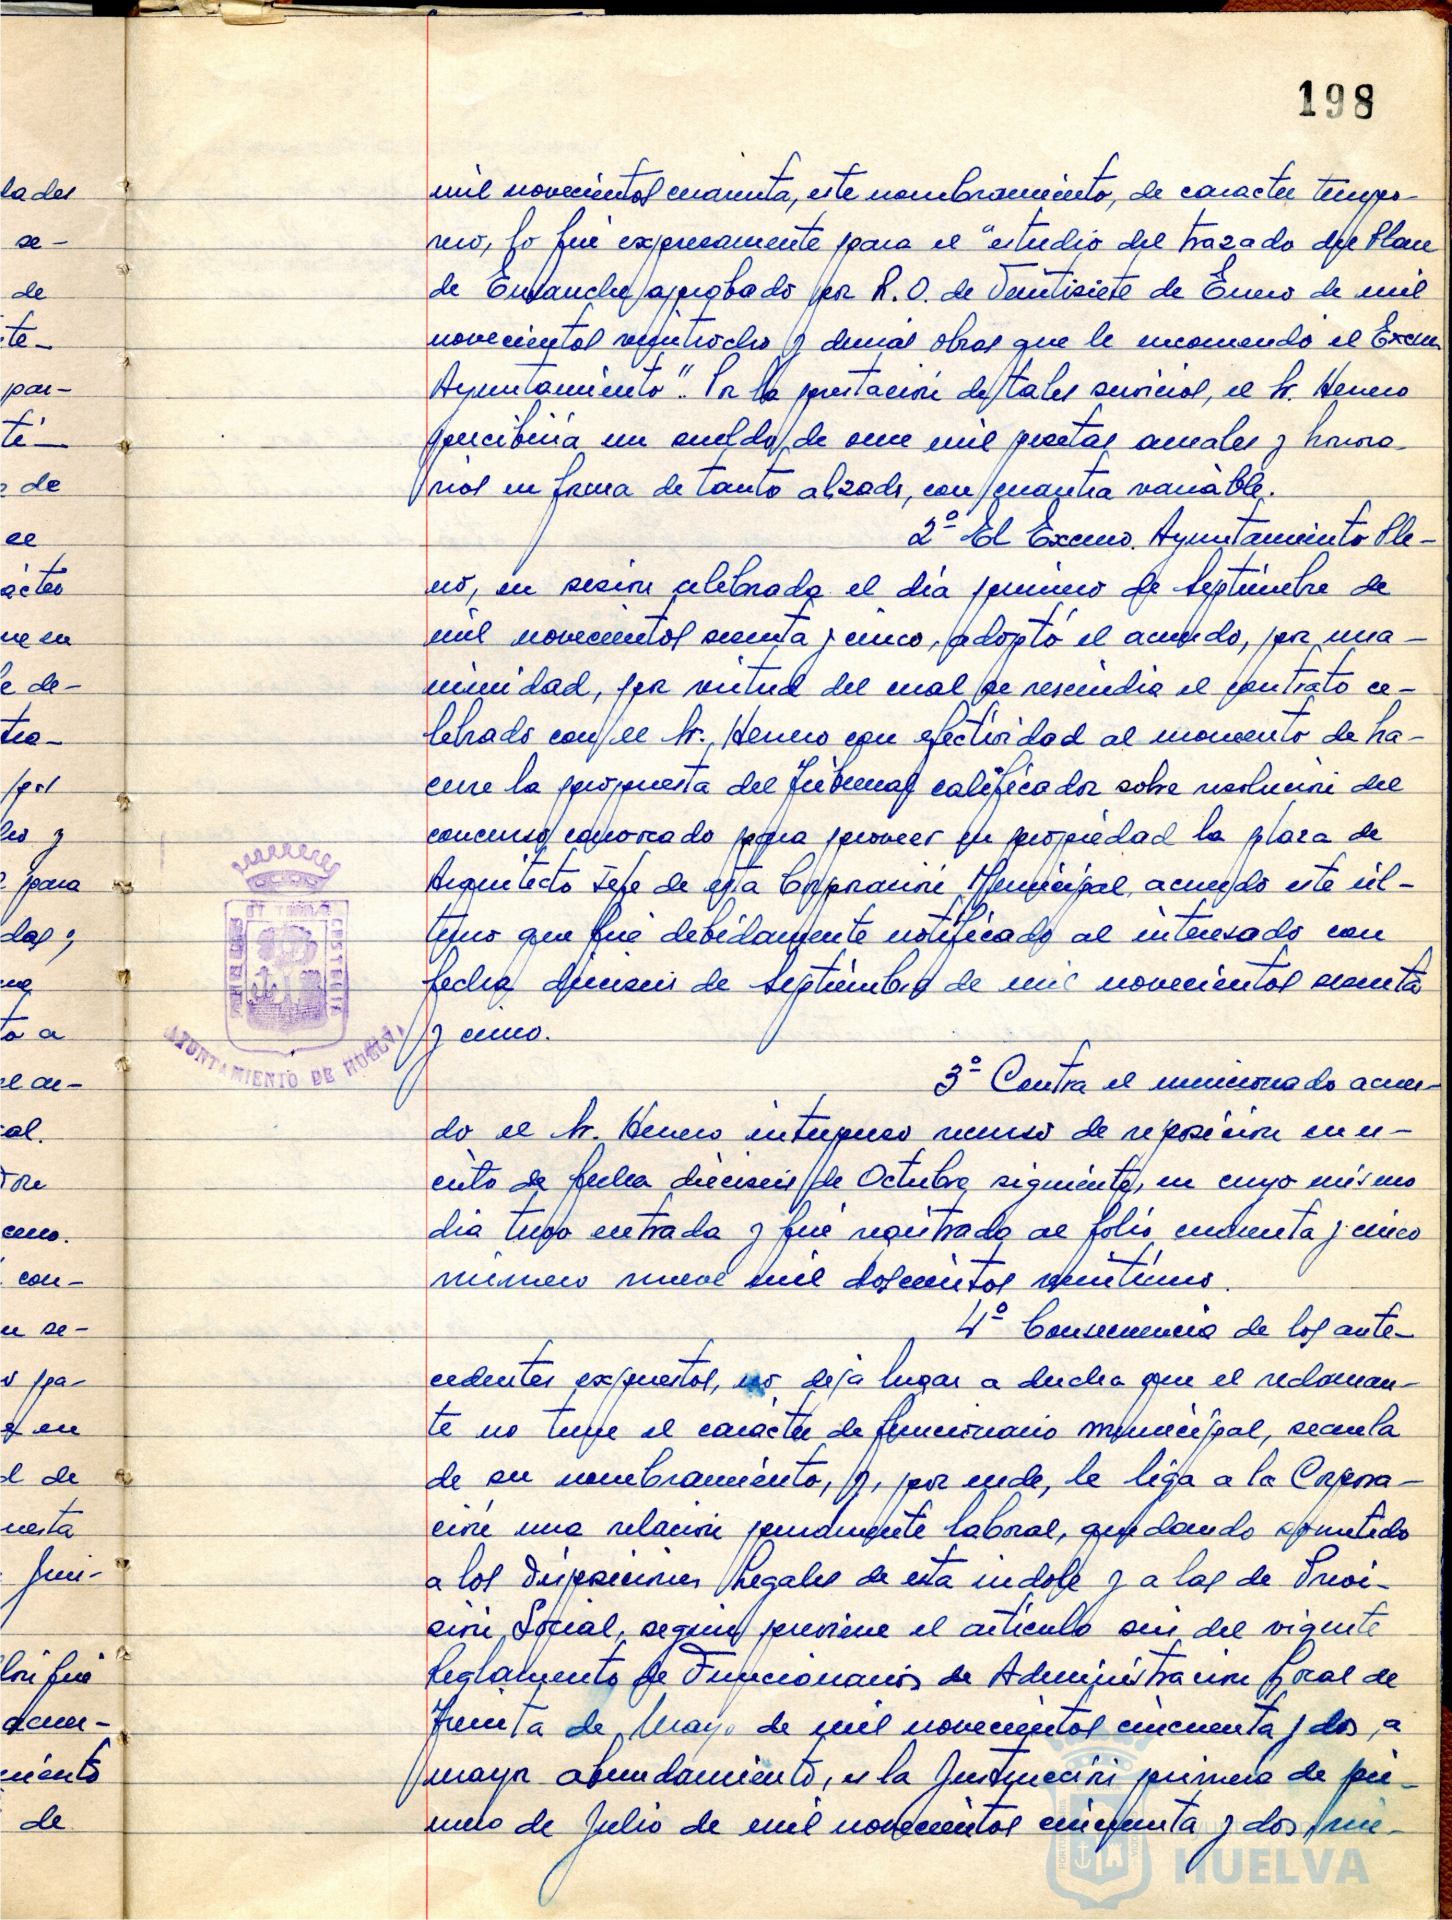 198
mil novecientos cuarenta, este nombramiento, de caracter tempo-
rero, lo fué expresamente para el "estudio del trazado del Plan
de Ensanche aprobado por R.O. de Veintisiete de Enero de mil
novecientos veintiocho y demás obras que le encomendó el Excmo
Ayuntamiento". Por la prestación de tales servicios, el Sr. Herrero
percibiría un sueldo de once mil pesetas anuales y honora-
rios en forma de tanto alzado, con cuantia variable.
2º El Excmo. Ayuntamiento Ple-
no, en sesión celebrada el día primero de Septiembre de
mil novecientos sesenta y cinco, adoptó el acuerdo, por una-
nimidad, por virtud del cual se rescindia el contrato ce-
lebrado con el Sr. Herrero con efectividad al momento de ha-
cerse la propuesta del Tribunal calificador sobre resolución del
concurso convocado para proveer en propiedad la plaza de
Arquitecto Jefe de esta Corporación Municipal, acuerdo este úl-
timo que fué debidamente notificado al interesado con
fecha dieciseis de Septiembre de mil novecientos sesenta
y cinco.
3º Contra el mencionado acuer-
do el Sr. Herrero interpuso recurso de reposición en es-
crito de fecha dieciseis de Octubre siguiente, en cuyo mismo
dia tuvo entrada y fué registrado al folio cincuenta y cinco
número nueve mil doscientos veintiuno.
4º Consecuencia de los ante-
cedentes expuestos, no deja lugar a dudas que el reclaman-
te no tiene el carácter de funcionario municipal, secuela
de su nombramiento, y, por ende, le liga a la Corpora-
ción una relación puramente laboral, quedando sometido
a los Disposiciones Legales de esta indole y a las de Previ-
sión Social, según previene el artículo seis del vigente
Reglamento de Funcionarios de Administración Local de
Treinta de Mayo de mil novecientos cincuenta y dos, a
mayor abundamiento, es la Instrucción primera de pri-
mero de Julio de mil novecientos cincuenta y dos,
AYUNTAMIENTO DE HUELVA
HUELVA